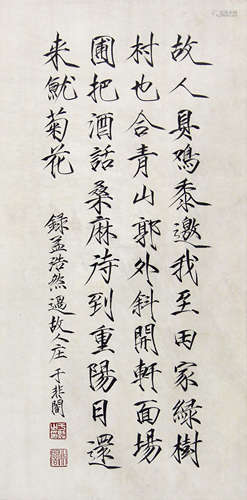 故人具鸡黍邀我至田家綠樹
村也合青山郭外斜開軒面場
圃把酒話桑麻待到重陽日還
来就菊花
録孟浩然過故人庄 于非闇